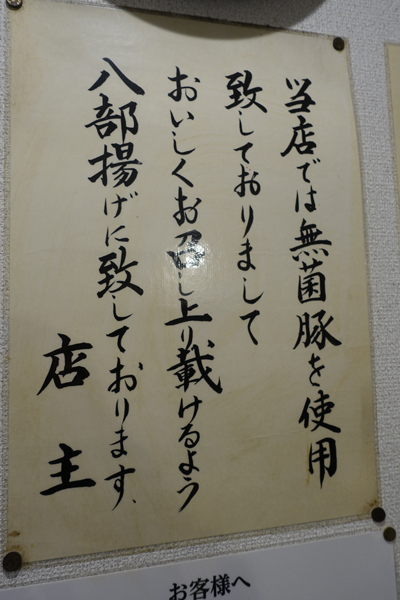 当店では無菌豚を使用
致しておりまして
おいしくお召し上り載けるよう
八部揚げに致しております、
店主
お客様へ